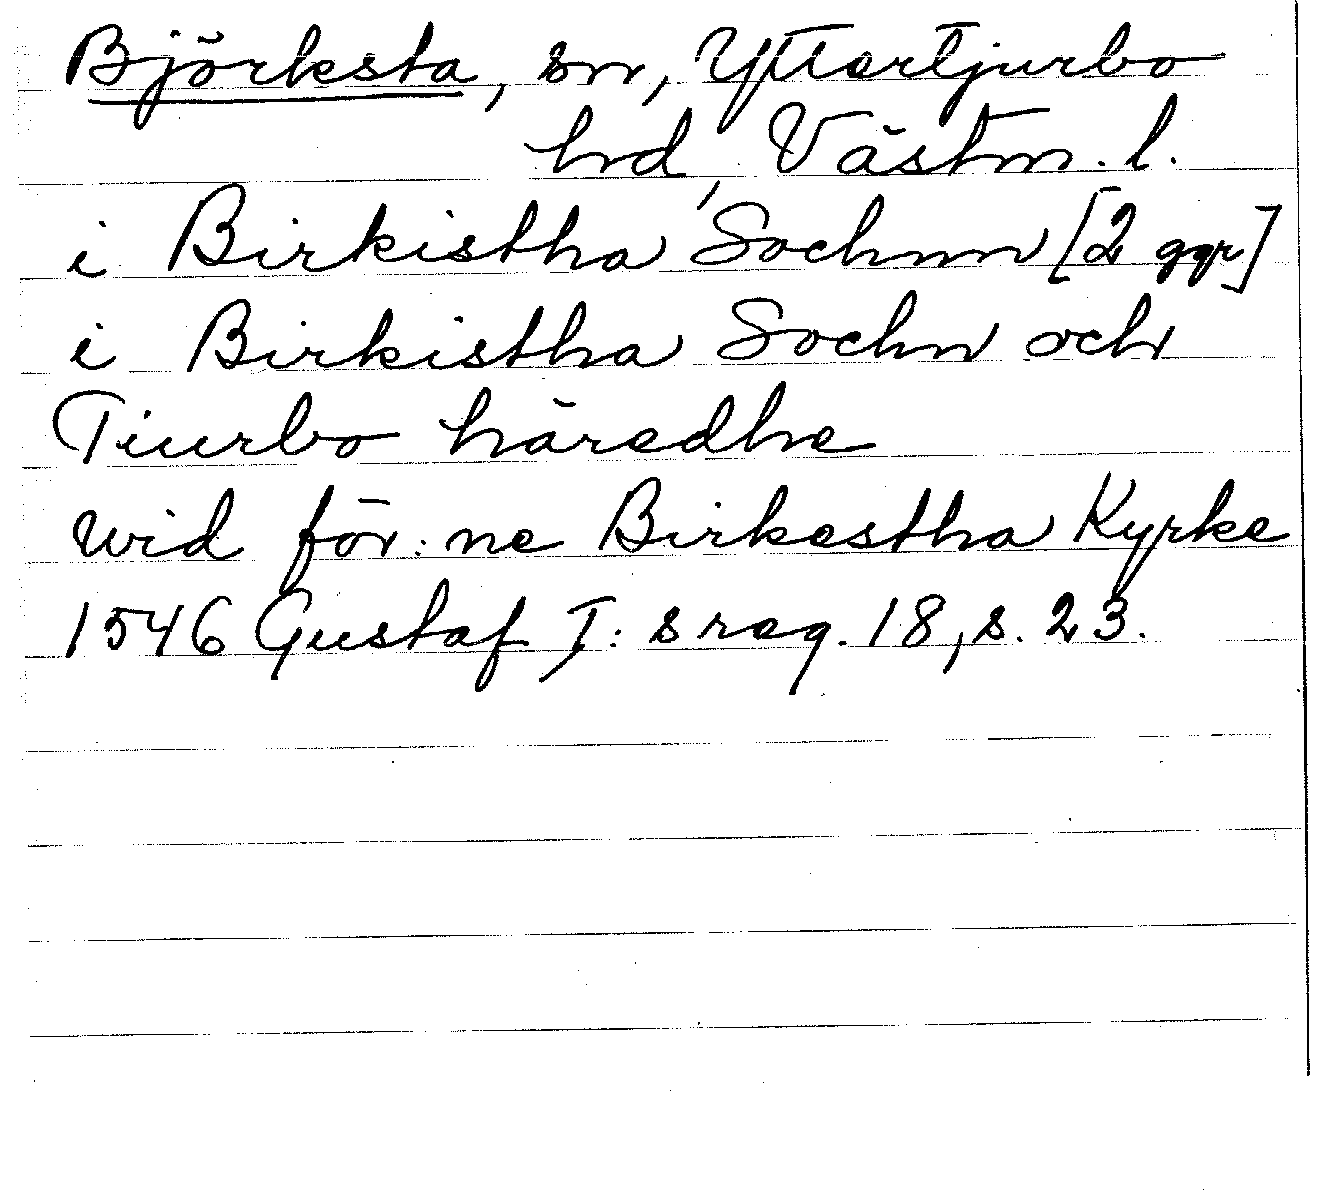 Björksta, sn, Yttertjurbo
hd, Västm. l.
i Birkistha Sochnn [2 ggr]
i Birkistha Sochn och
Tiurbo häredhe
wid för:ne Birkestha Kyrke
1546 Gustaf I:s reg. 18, s. 23.